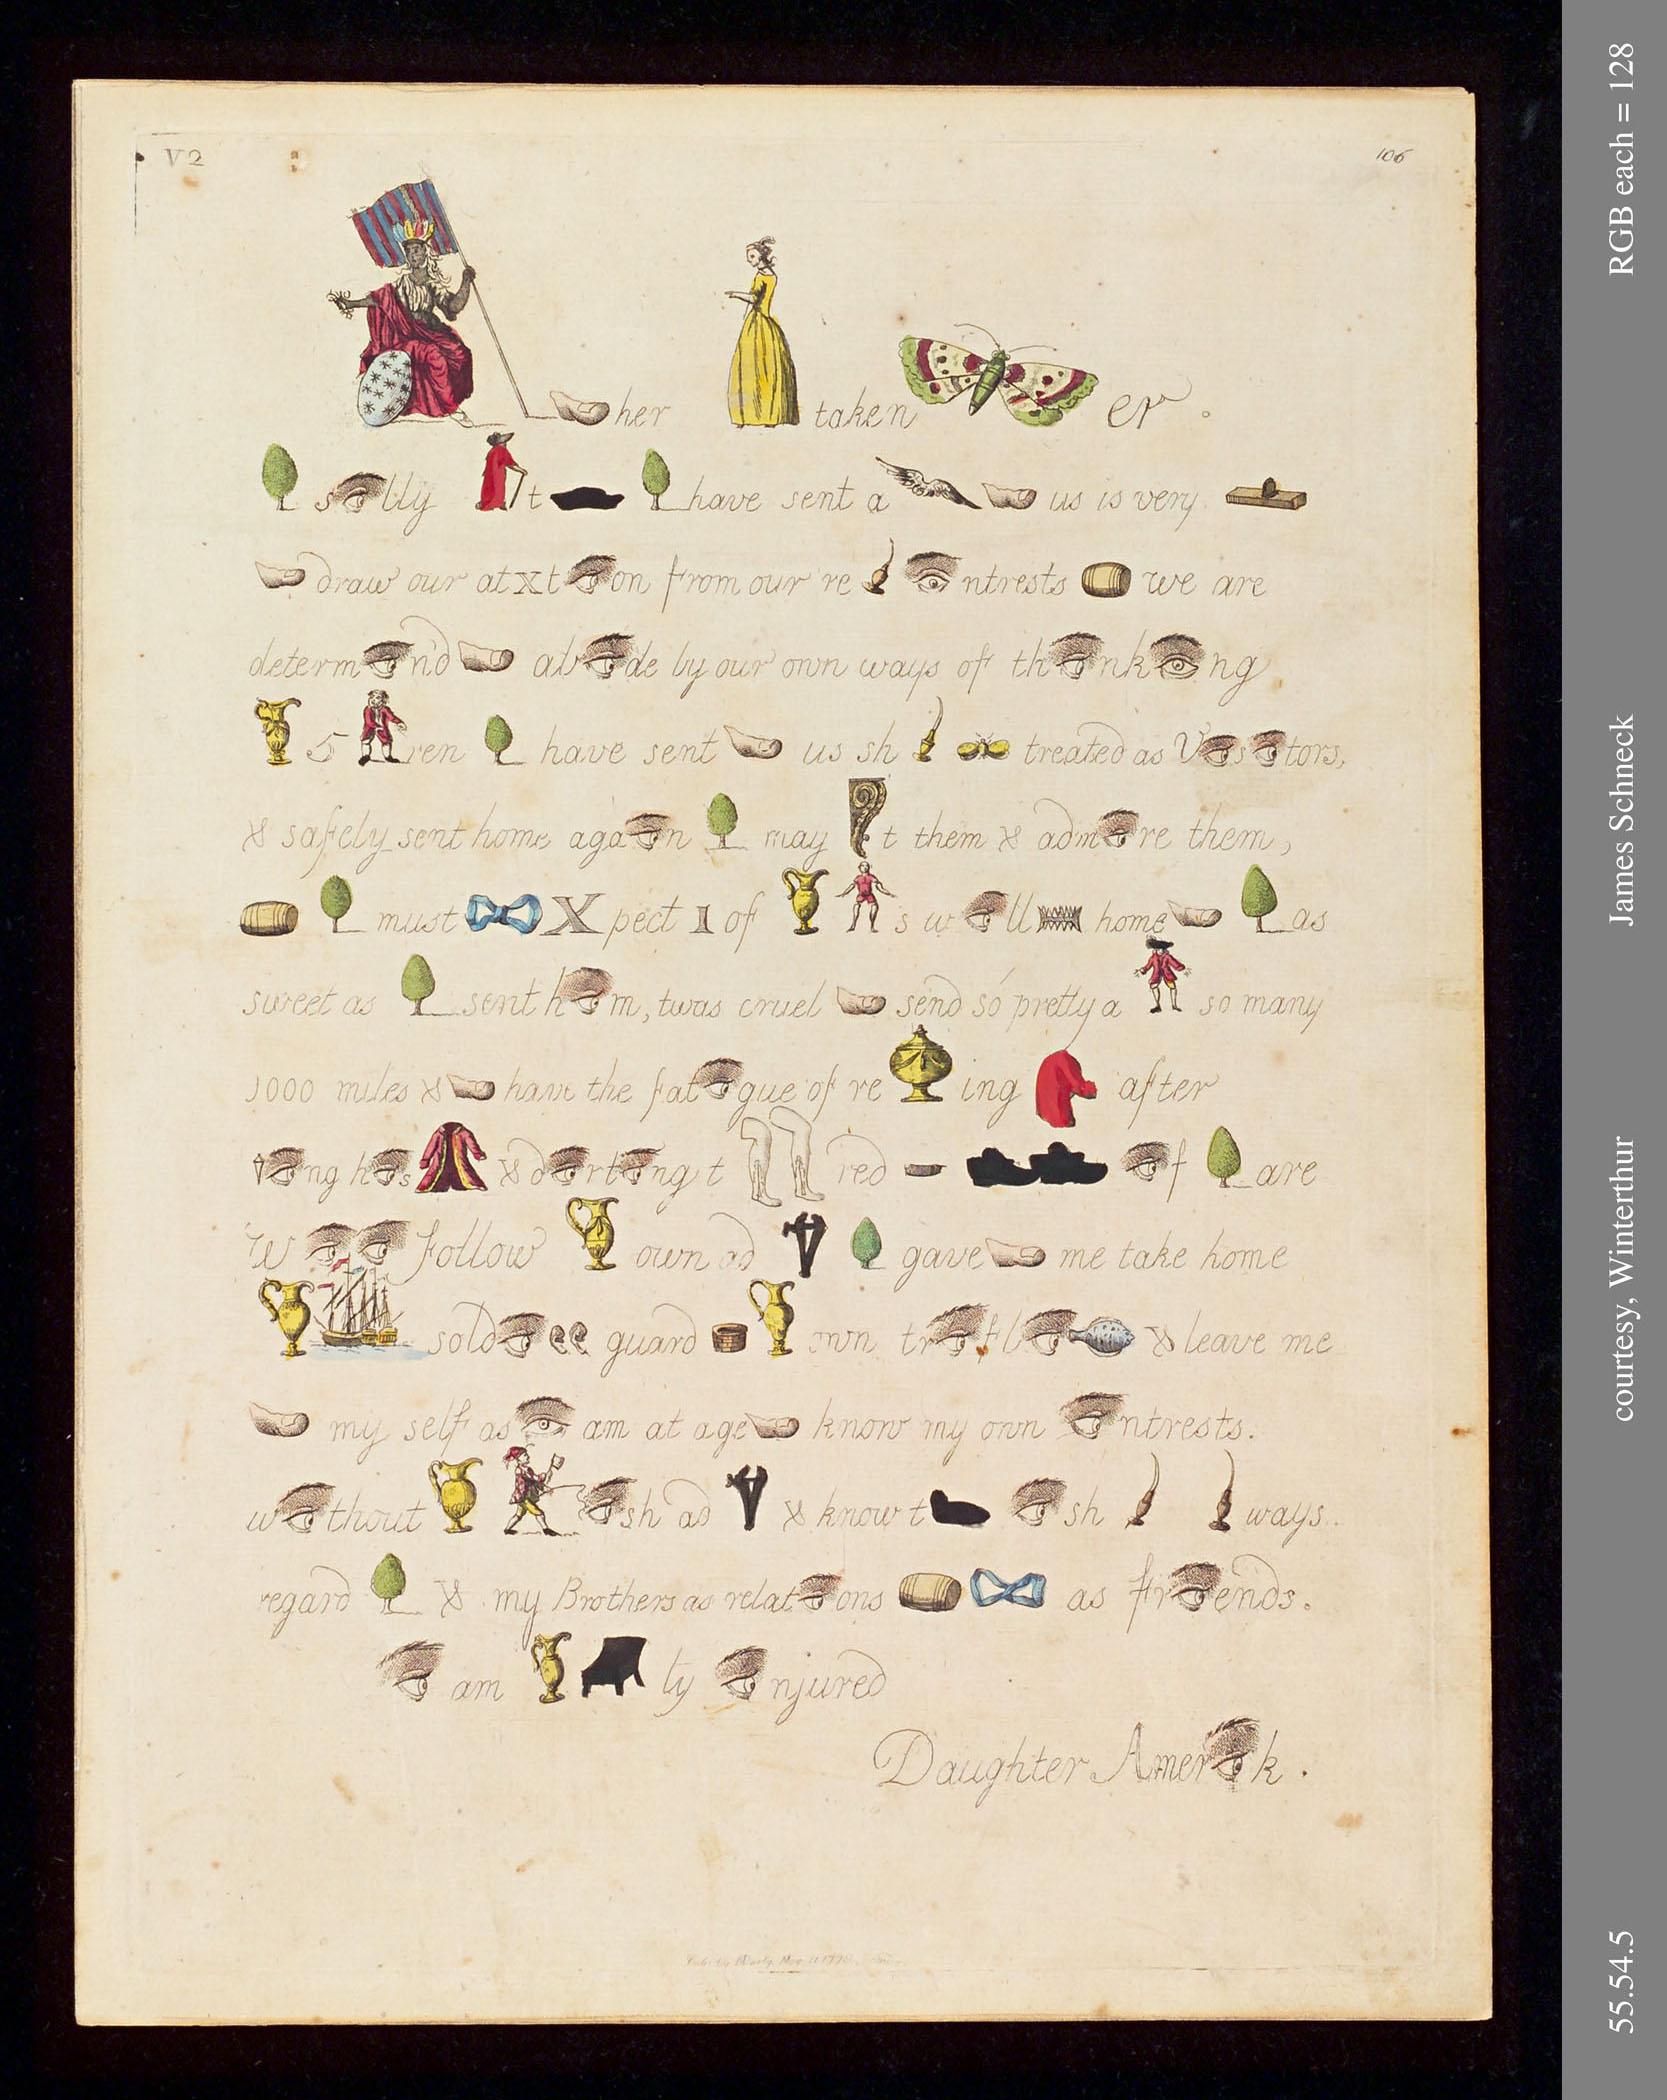 V2
106
her taken er.
s lly t have sent a us is very
draw our at x t on from our re ntrests we are
determ nd ab de by our own ways of th nk ng
5 ren have sent us sh treated as V s tors,
& safely sent home aga n may t them & adm re them,
must X pect 1 of s w ll home as
sweet as sent h m, twas cruel send so pretty a so many
1000 miles & have the fat gue of re ing after
ng h s & d rt ng t red f are
w follow own ad gave me take home
sold guard own tr fl & leave me
my self as am at age know my own ntrests.
w thout sh ad & know t sh ways.
regard & my Brothers as relat ons as fr ends.
am ly njured
Daughter Amer k.
RGB each = 128
James Schneck
courtesy, Winterthur
55.54.5